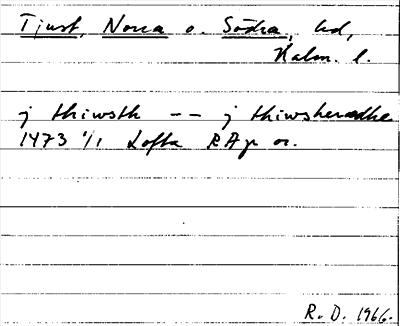 Tjust, Norra o. Södra, hd,
Kalm. l.
j thiwsth -- j thiwsheradhe
1473 1/1 Lofta RAp or.
R. D. 1966.